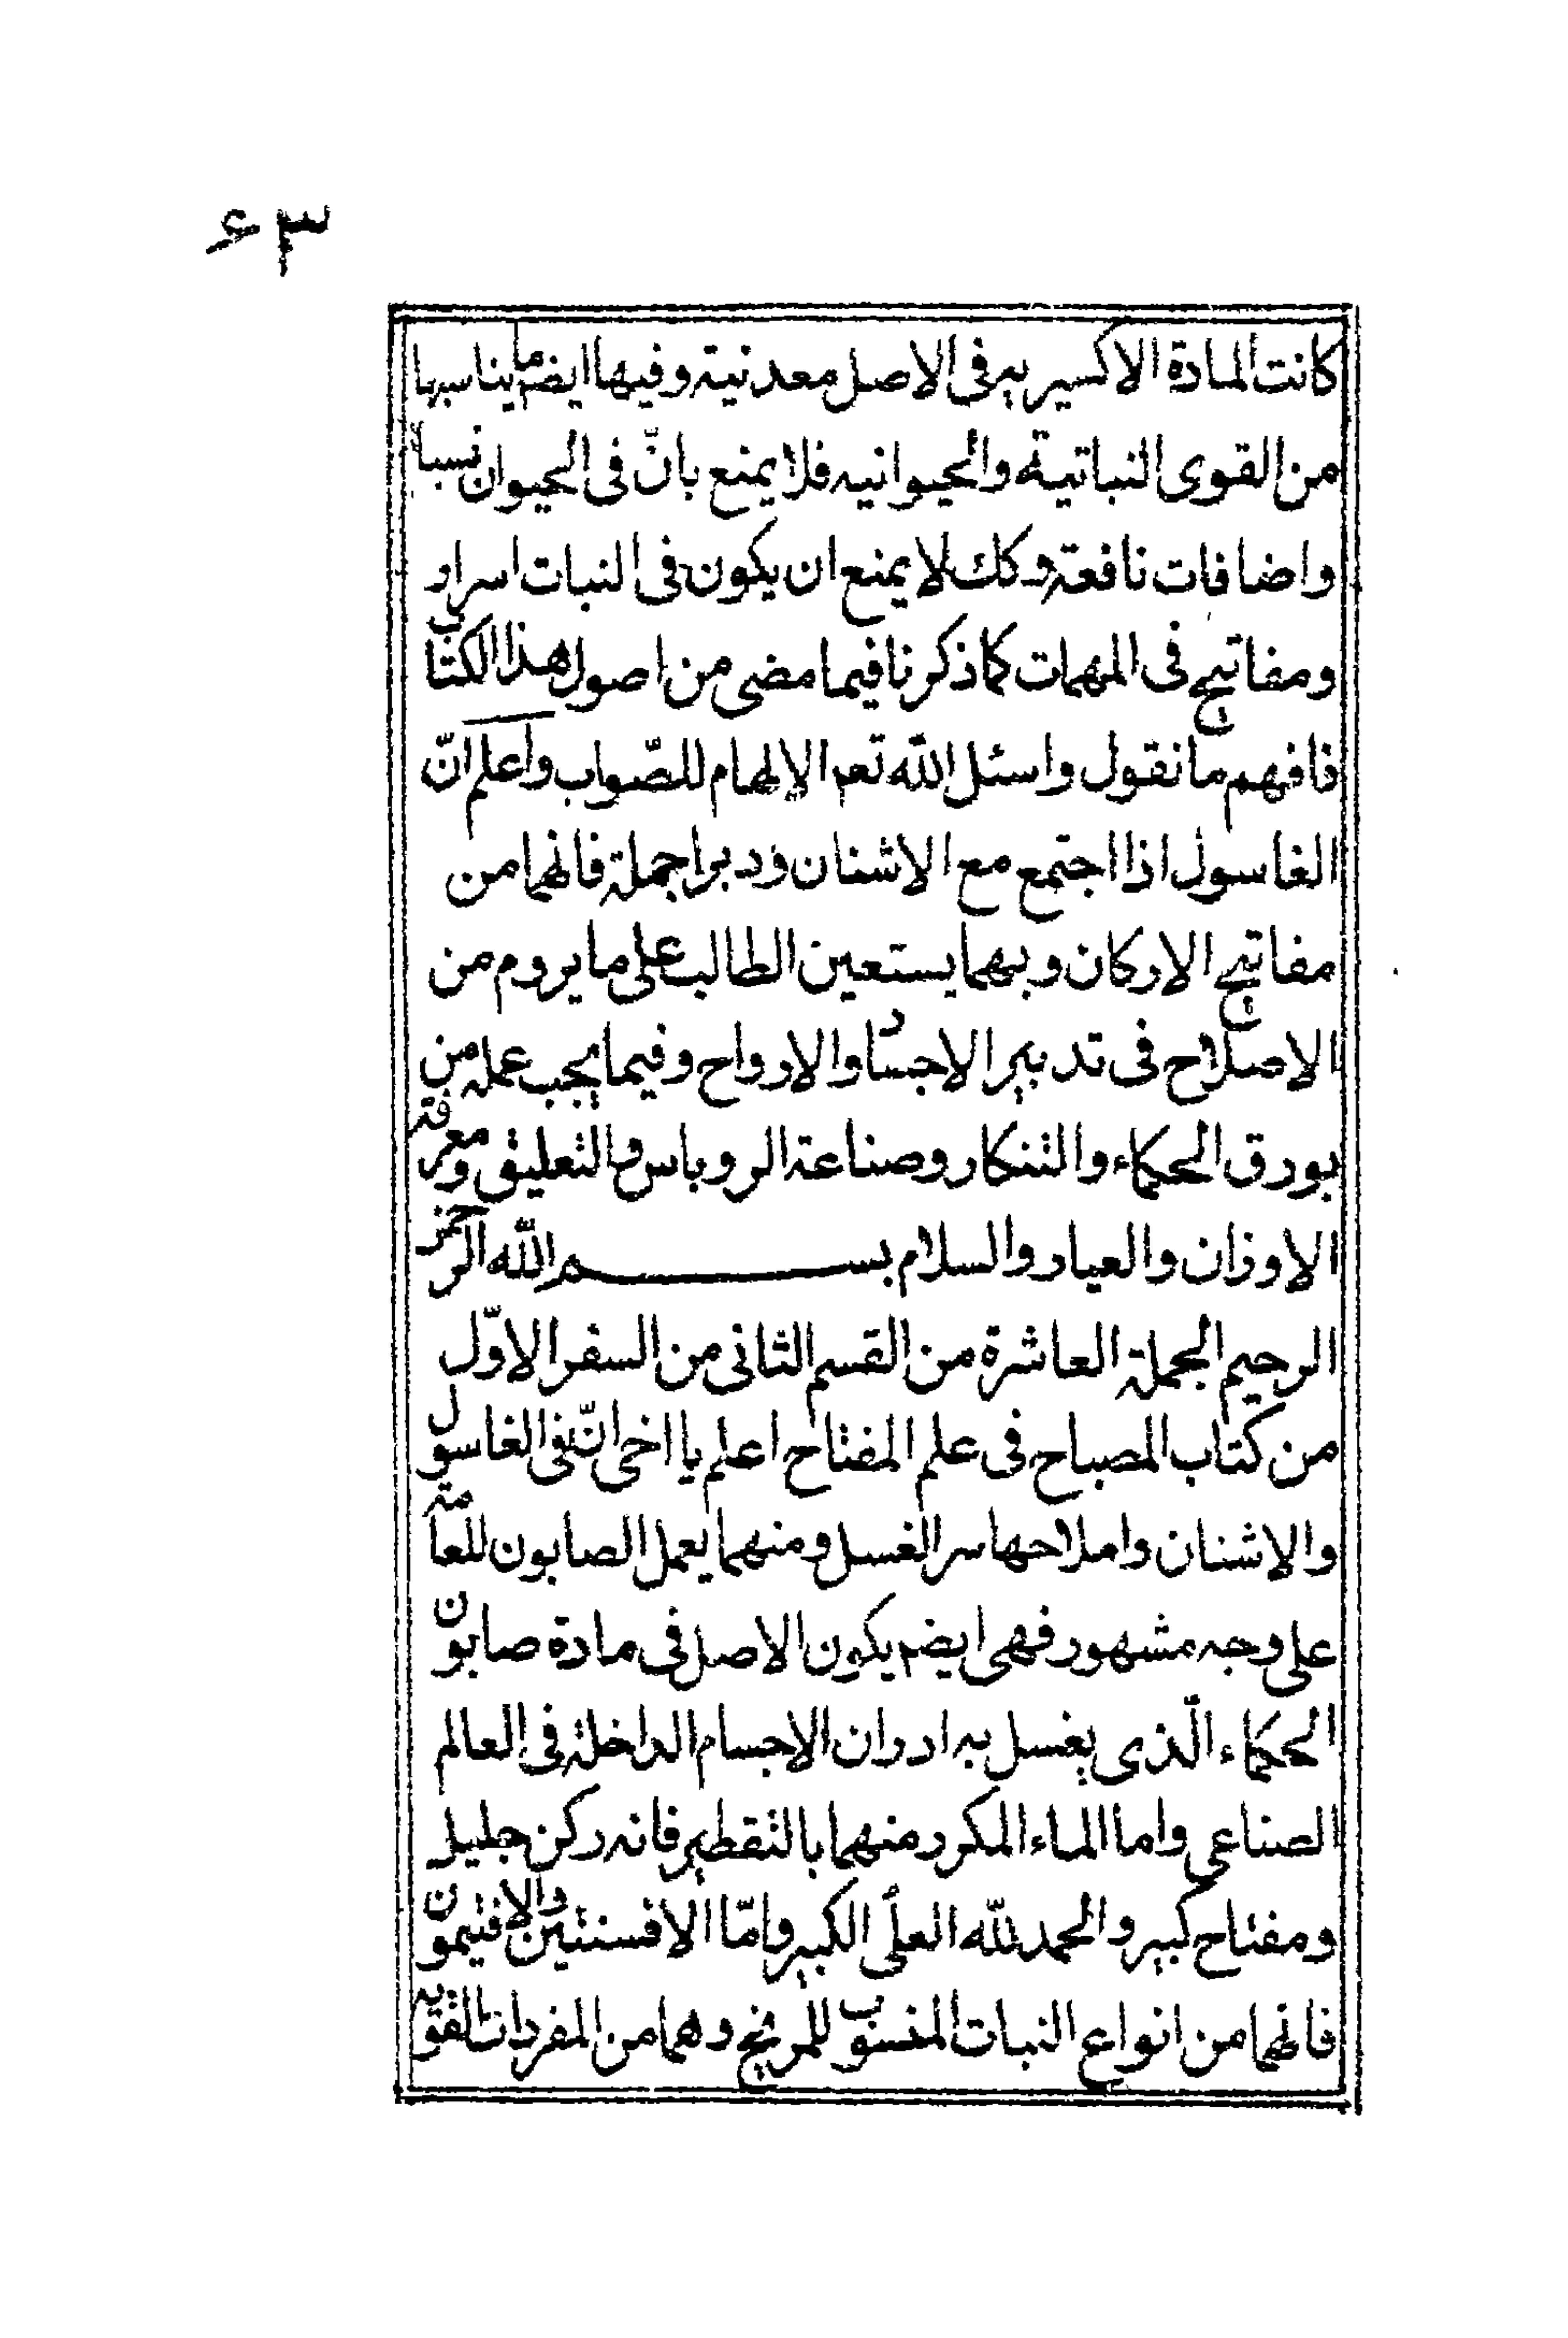 ٦٣
كانت المادة الاكسيريه فى الاصل معدنية وفيها ايضم ما يناسبها
من القوى النباتية والحيوانيه فلا يمنع بانّ فى الحيوان نسباً
واضافات نافعة وكك لا يمنع ان يكون فى النبات اسرار
ومفاتيح فى المهمات كما ذكرنا فيما مضى من اصول هذا الكتاب
فافهم ما نقول واسئل الله تعم الإلهام للصّواب واعلم انّ
الغاسول اذا اجتمع مع الاشنان ودبرا جملة فانهما من
مفاتيح الاركان وبهما يستعين الطالب على ما يروم من
الاصلاح فى تدبير الاجساد والارواح وفيما يجب عمله من
بورق الحكماء والتنكار وصناعة الروباس والتعليق ومعرفة
الاوزان والعيار والسلام بسم الله الرحمن
الرحيم الجملة العاشرة من القسم الثانى من السفر الاوّل
من كتاب المصباح فى علم المفتاح اعلم يا اخى انّ فى الغاسول
والاشنان واملاحها سر الغسل ومنهما يعمل الصابون للعامة
على وجه مشهور فهى ايضم يكون الاصل فى مادة صابون
الحكماء الّذى يغسل به ادران الاجسام الداخلة فى العالم
الصناعى واما الماء المكرر منهما بالتقطير فانه ركن جليل
ومفتاح كبير والحمد للّه العلى الكبير وامّا الافسنتين والافتيمون
فانهما من انواع النبات المنسوب للمريخ وهما من المفردات القويه